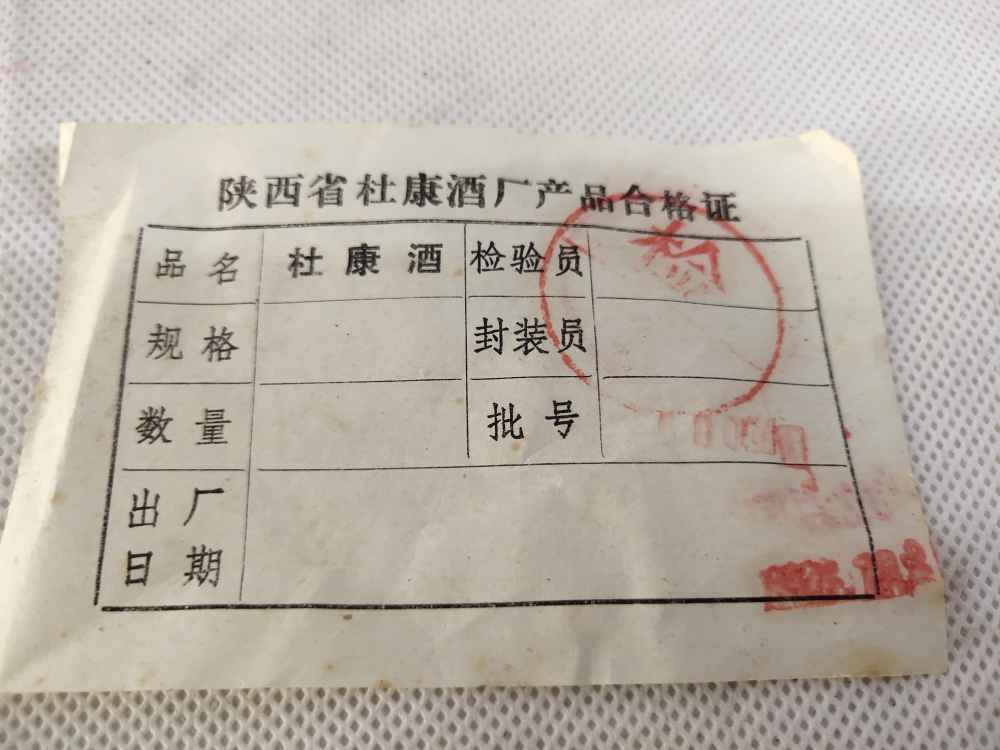 陕西省杜康酒厂产品合格证
品名 杜康酒 检验员
规格 封装员
数量 批号
出厂
日期